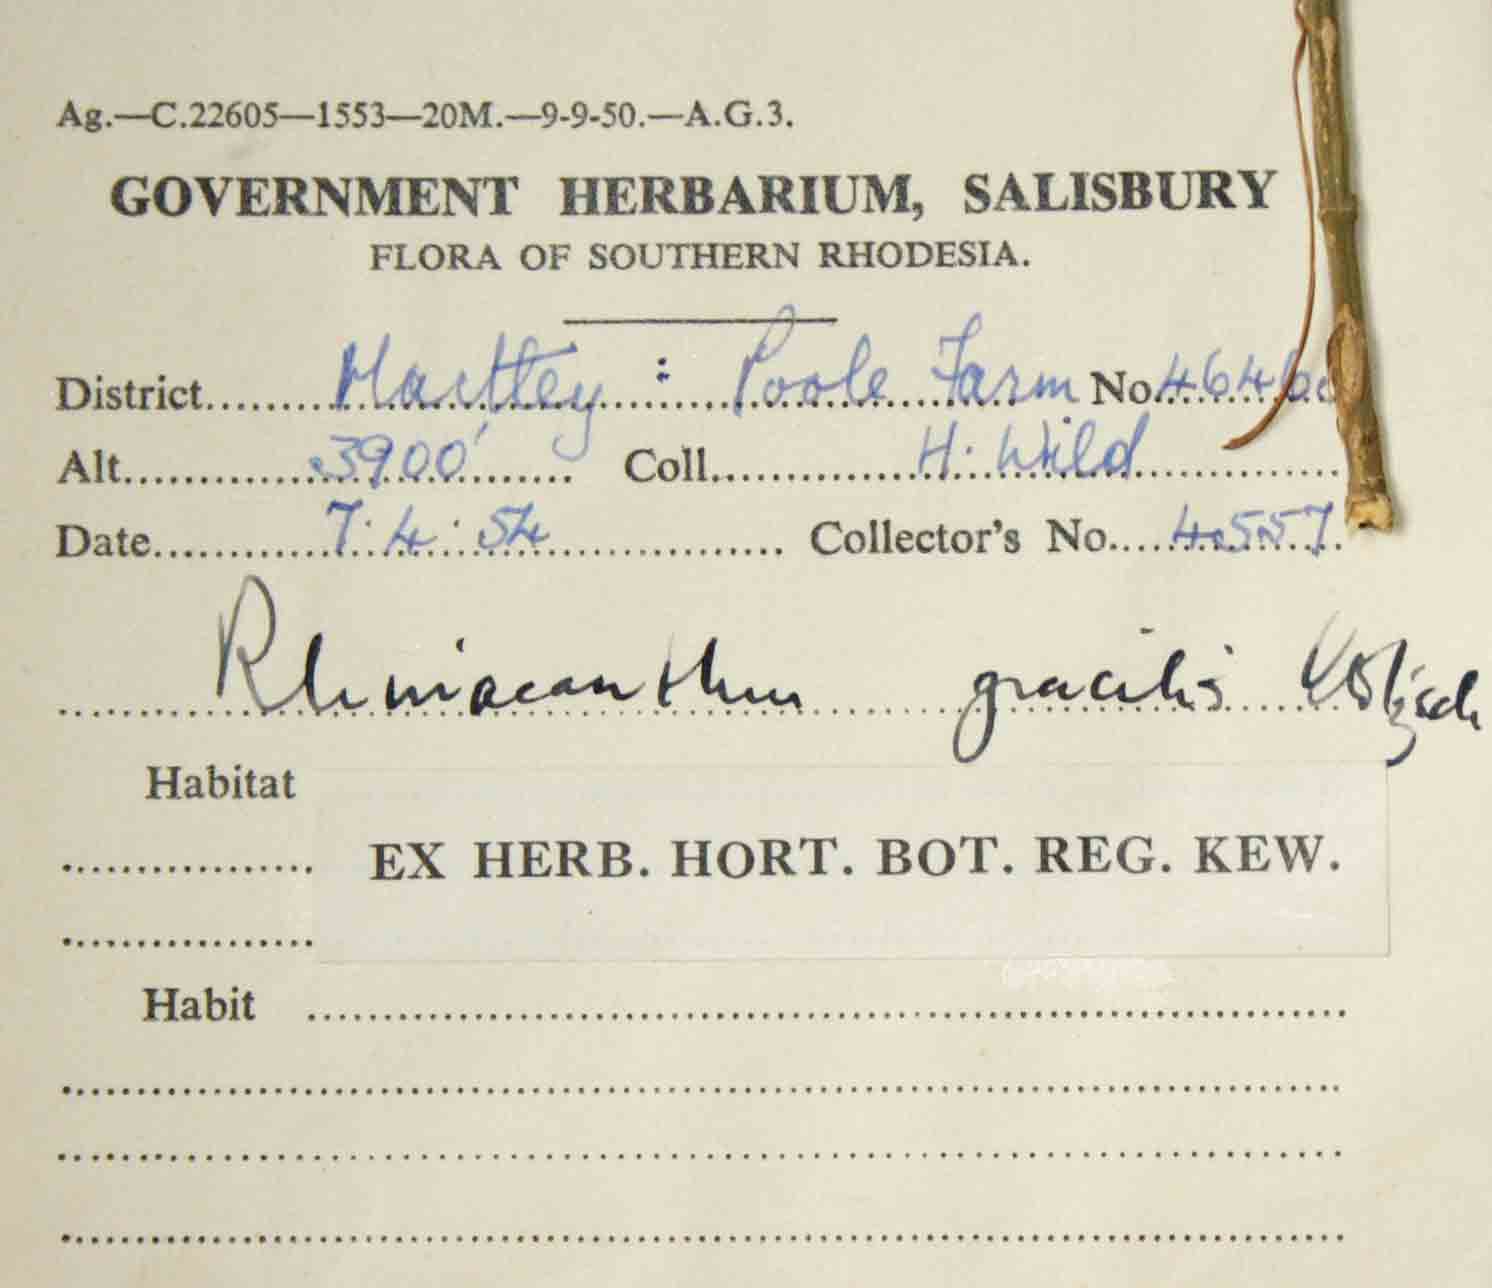 Ag.—C.22605—1553—20M.—9-9-50.—A.G.3.
GOVERNMENT HERBARIUM, SALISBURY
FLORA OF SOUTHERN RHODESIA.
District Hartley : Poole Farm No. 4646
Alt. 3900' Coll. H. Wild
Date 7.4.54 Collector's No. 4557
Rhinacanthus gracilis Klotzsch
Habitat
EX HERB. HORT. BOT. REG. KEW.
Habit